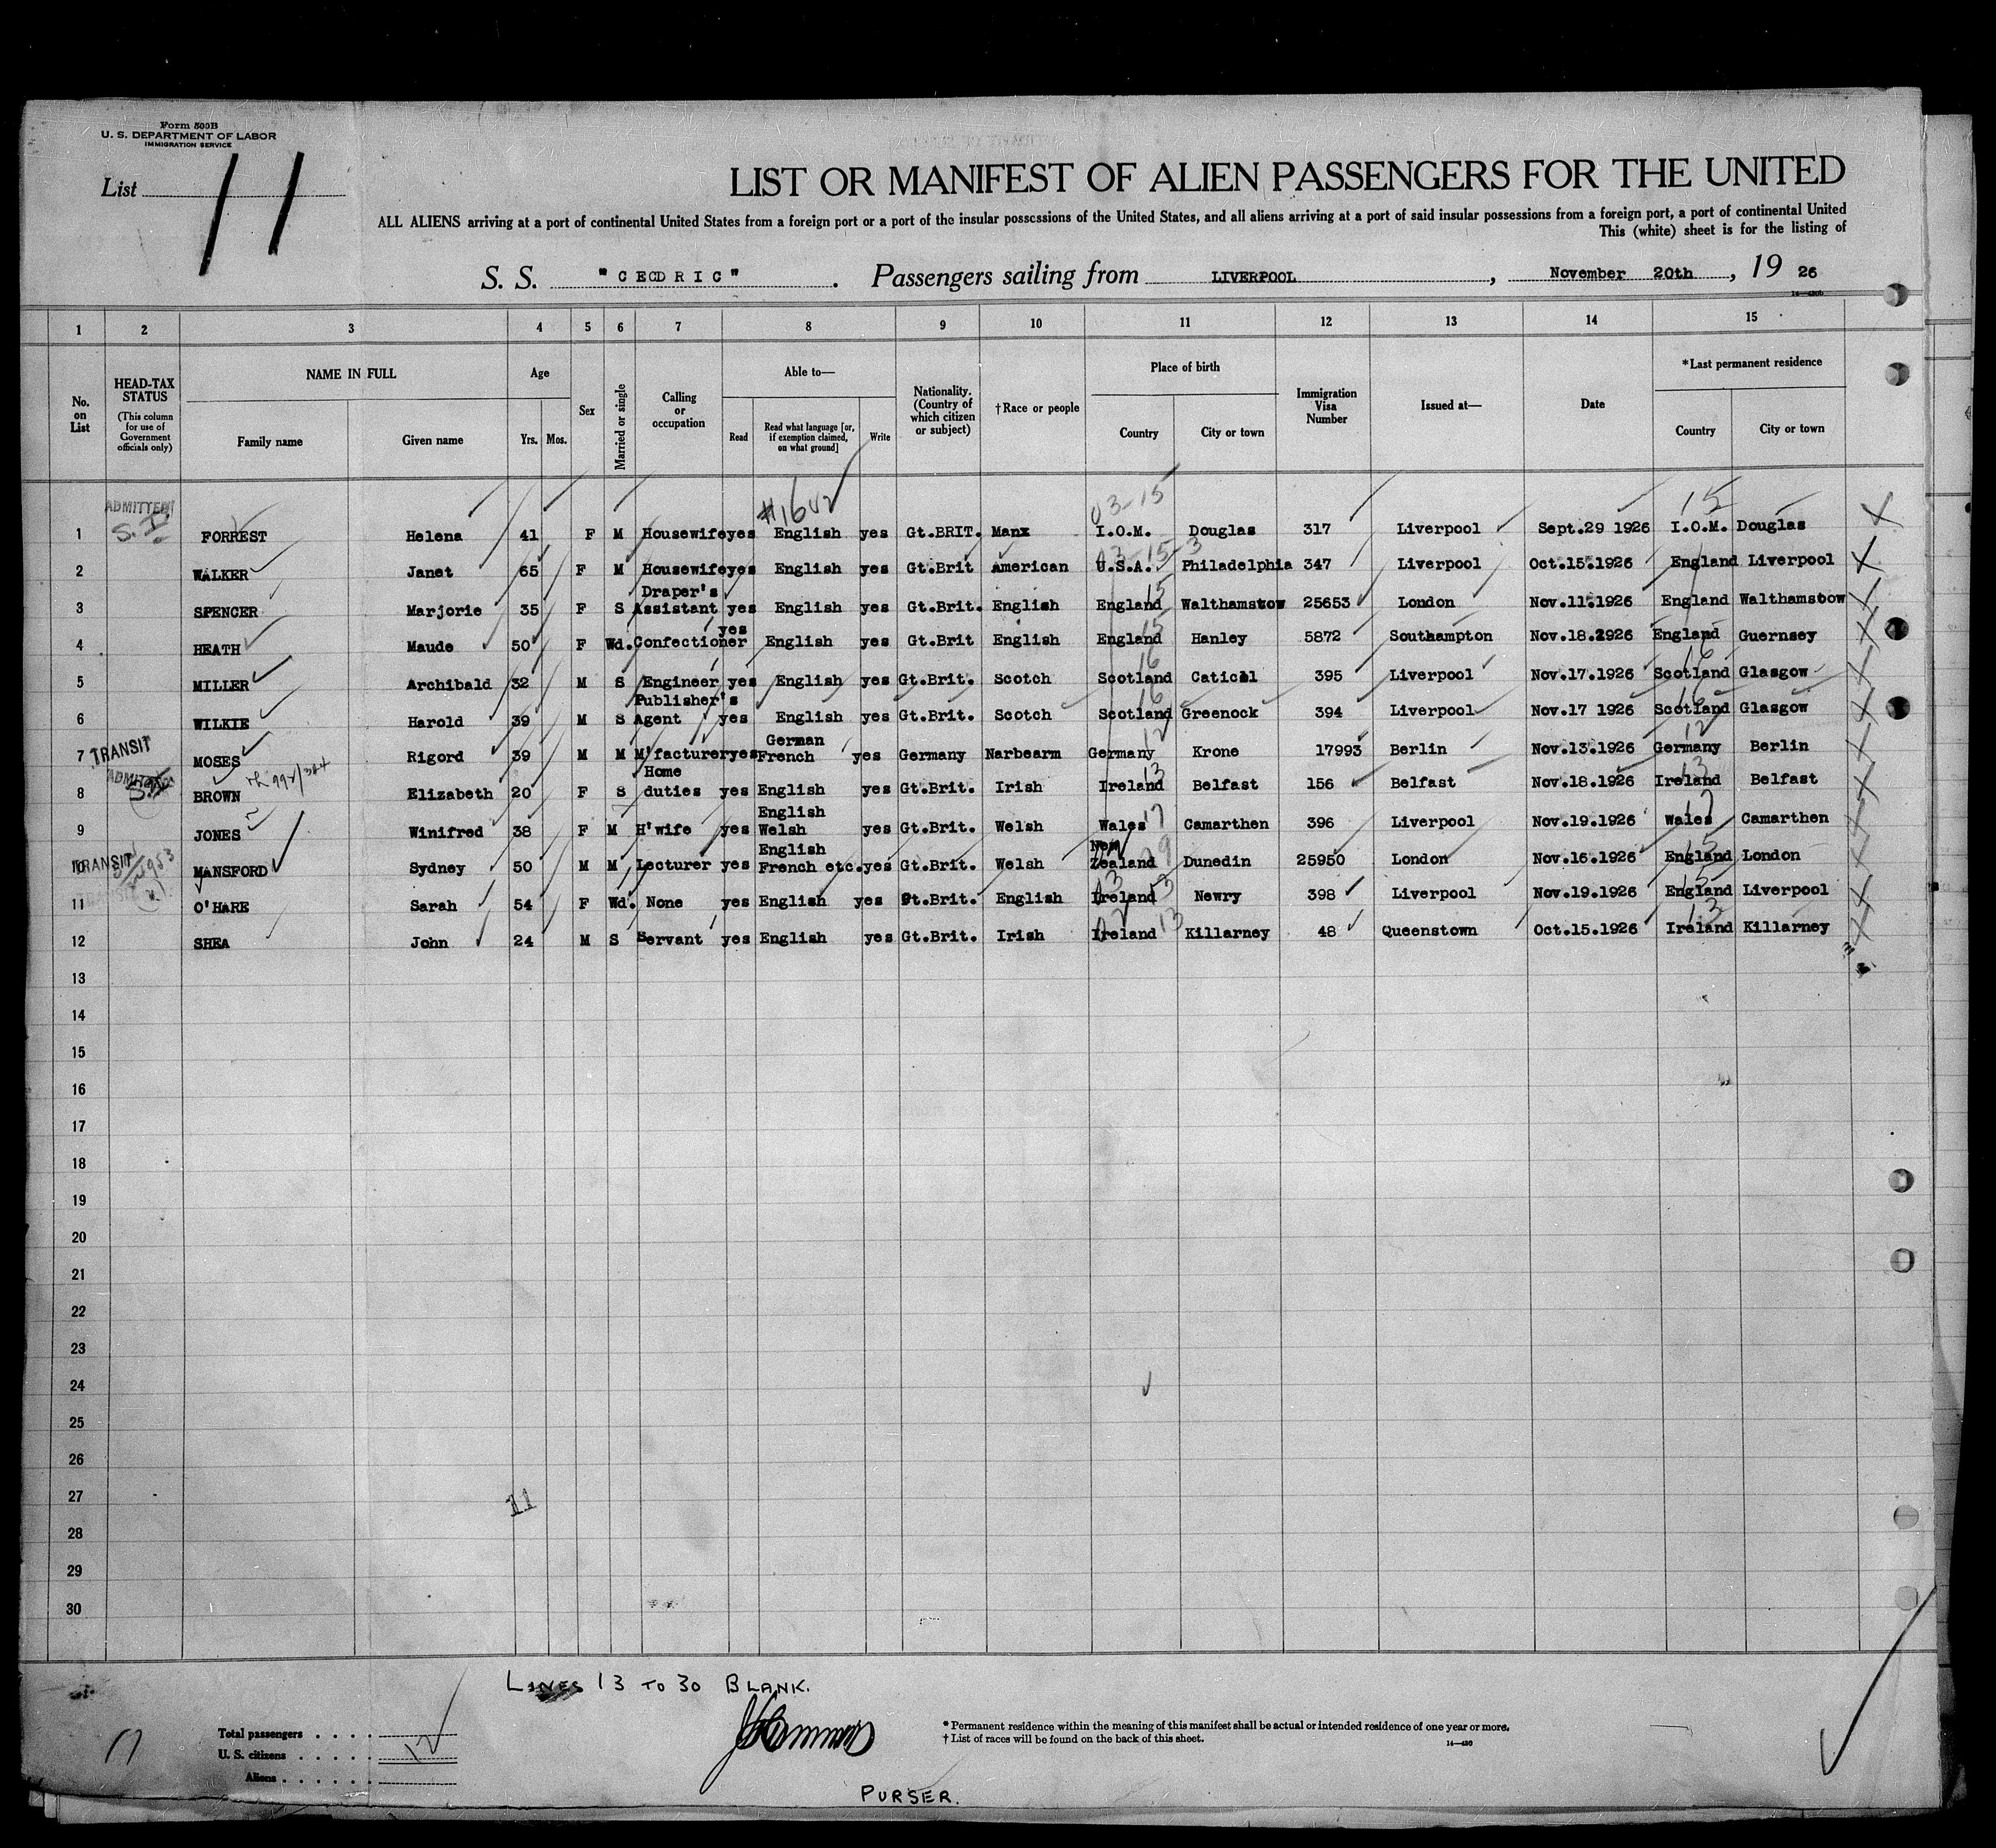 Form 500B
U. S. DEPARTMENT OF LABOR
IMMIGRATION SERVICE
List 11
LIST OR MANIFEST OF ALIEN PASSENGERS FOR THE UNITED
ALL ALIENS arriving at a port of continental United States from a foreign port or a port of the insular possessions of the United States, and all aliens arriving at a port of said insular possessions from a foreign port, a port of continental United
This (white) sheet is for the listing of
S. S. "CEDRIC". Passengers sailing from LIVERPOOL, November 20th, 1926
1 2 3 4 5 6 7 8 9 10 11 12 13 14 15
No. on List
HEAD-TAX STATUS (This column for use of Government officials only)
NAME IN FULL
Family name Given name
Age
Yrs. Mos.
Sex
Married or single
Calling or occupation
Able to—
Read Read what language [or, if exemption claimed, on what ground] Write
Nationality. (Country of which citizen or subject)
†Race or people
Place of birth
Country City or town
Immigration Visa Number
Issued at—
Date
*Last permanent residence
Country City or town
#1602 03-15 15
ADMITTED S.I.
1 FORREST Helena 41 F M Housewife yes English yes Gt.BRIT. Manx I.O.M. Douglas 317 Liverpool Sept.29 1926 I.O.M. Douglas
03-15-3
2 WALKER Janet 65 F M Housewife yes English yes Gt.Brit American U.S.A. Philadelphia 347 Liverpool Oct.15.1926 England Liverpool
3 SPENCER Marjorie 35 F S Draper's Assistant yes English yes Gt.Brit. English England Walthamstow 25653 London Nov.11.1926 England Walthamstow
4 HEATH Maude 50 F Wd. Confectioner yes English yes Gt.Brit English England Hanley 5872 Southampton Nov.18.1926 England Guernsey
5 MILLER Archibald 32 M S Engineer yes English yes Gt.Brit. Scotch Scotland 395 Liverpool Nov.17.1926 Scotland Glasgow
6 WILKIE Harold 39 M S Publisher's Agent yes English yes Gt.Brit. Scotch Scotland Greenock 394 Liverpool Nov.17 1926 Scotland Glasgow
TRANSIT
7 MOSES Rigord 39 M M M'facturer yes German French yes Germany Narbearm Germany Krone 17993 Berlin Nov.13.1926 Germany Berlin
ADMITTED
8 BROWN Elizabeth 20 F S Home duties yes English yes Gt.Brit. Irish Ireland Belfast 156 Belfast Nov.18.1926 Ireland Belfast
9 JONES Winifred 38 F M H'wife yes English Welsh yes Gt.Brit. Welsh Wales Camarthen 396 Liverpool Nov.19.1926 Wales Camarthen
TRANSIT
10 MANSFORD Sydney 50 M M Lecturer yes English French etc. yes Gt.Brit. Welsh New Zealand Dunedin 25950 London Nov.16.1926 England London
11 O'HARE Sarah 54 F Wd. None yes English yes Gt.Brit. English Ireland Newry 398 Liverpool Nov.19.1926 England Liverpool
12 SHEA John 24 M S Servant yes English yes Gt.Brit. Irish Ireland Killarney 48 Queenstown Oct.15.1926 Ireland Killarney
13
14
15
16
17
18
19
20
21
22
23
24
25
26
27
11
28
29
30
LINES 13 TO 30 BLANK.
Total passengers
U. S. citizens 12
Aliens
* Permanent residence within the meaning of this manifest shall be actual or intended residence of one year or more.
† List of races will be found on the back of this sheet.
14—430
PURSER.